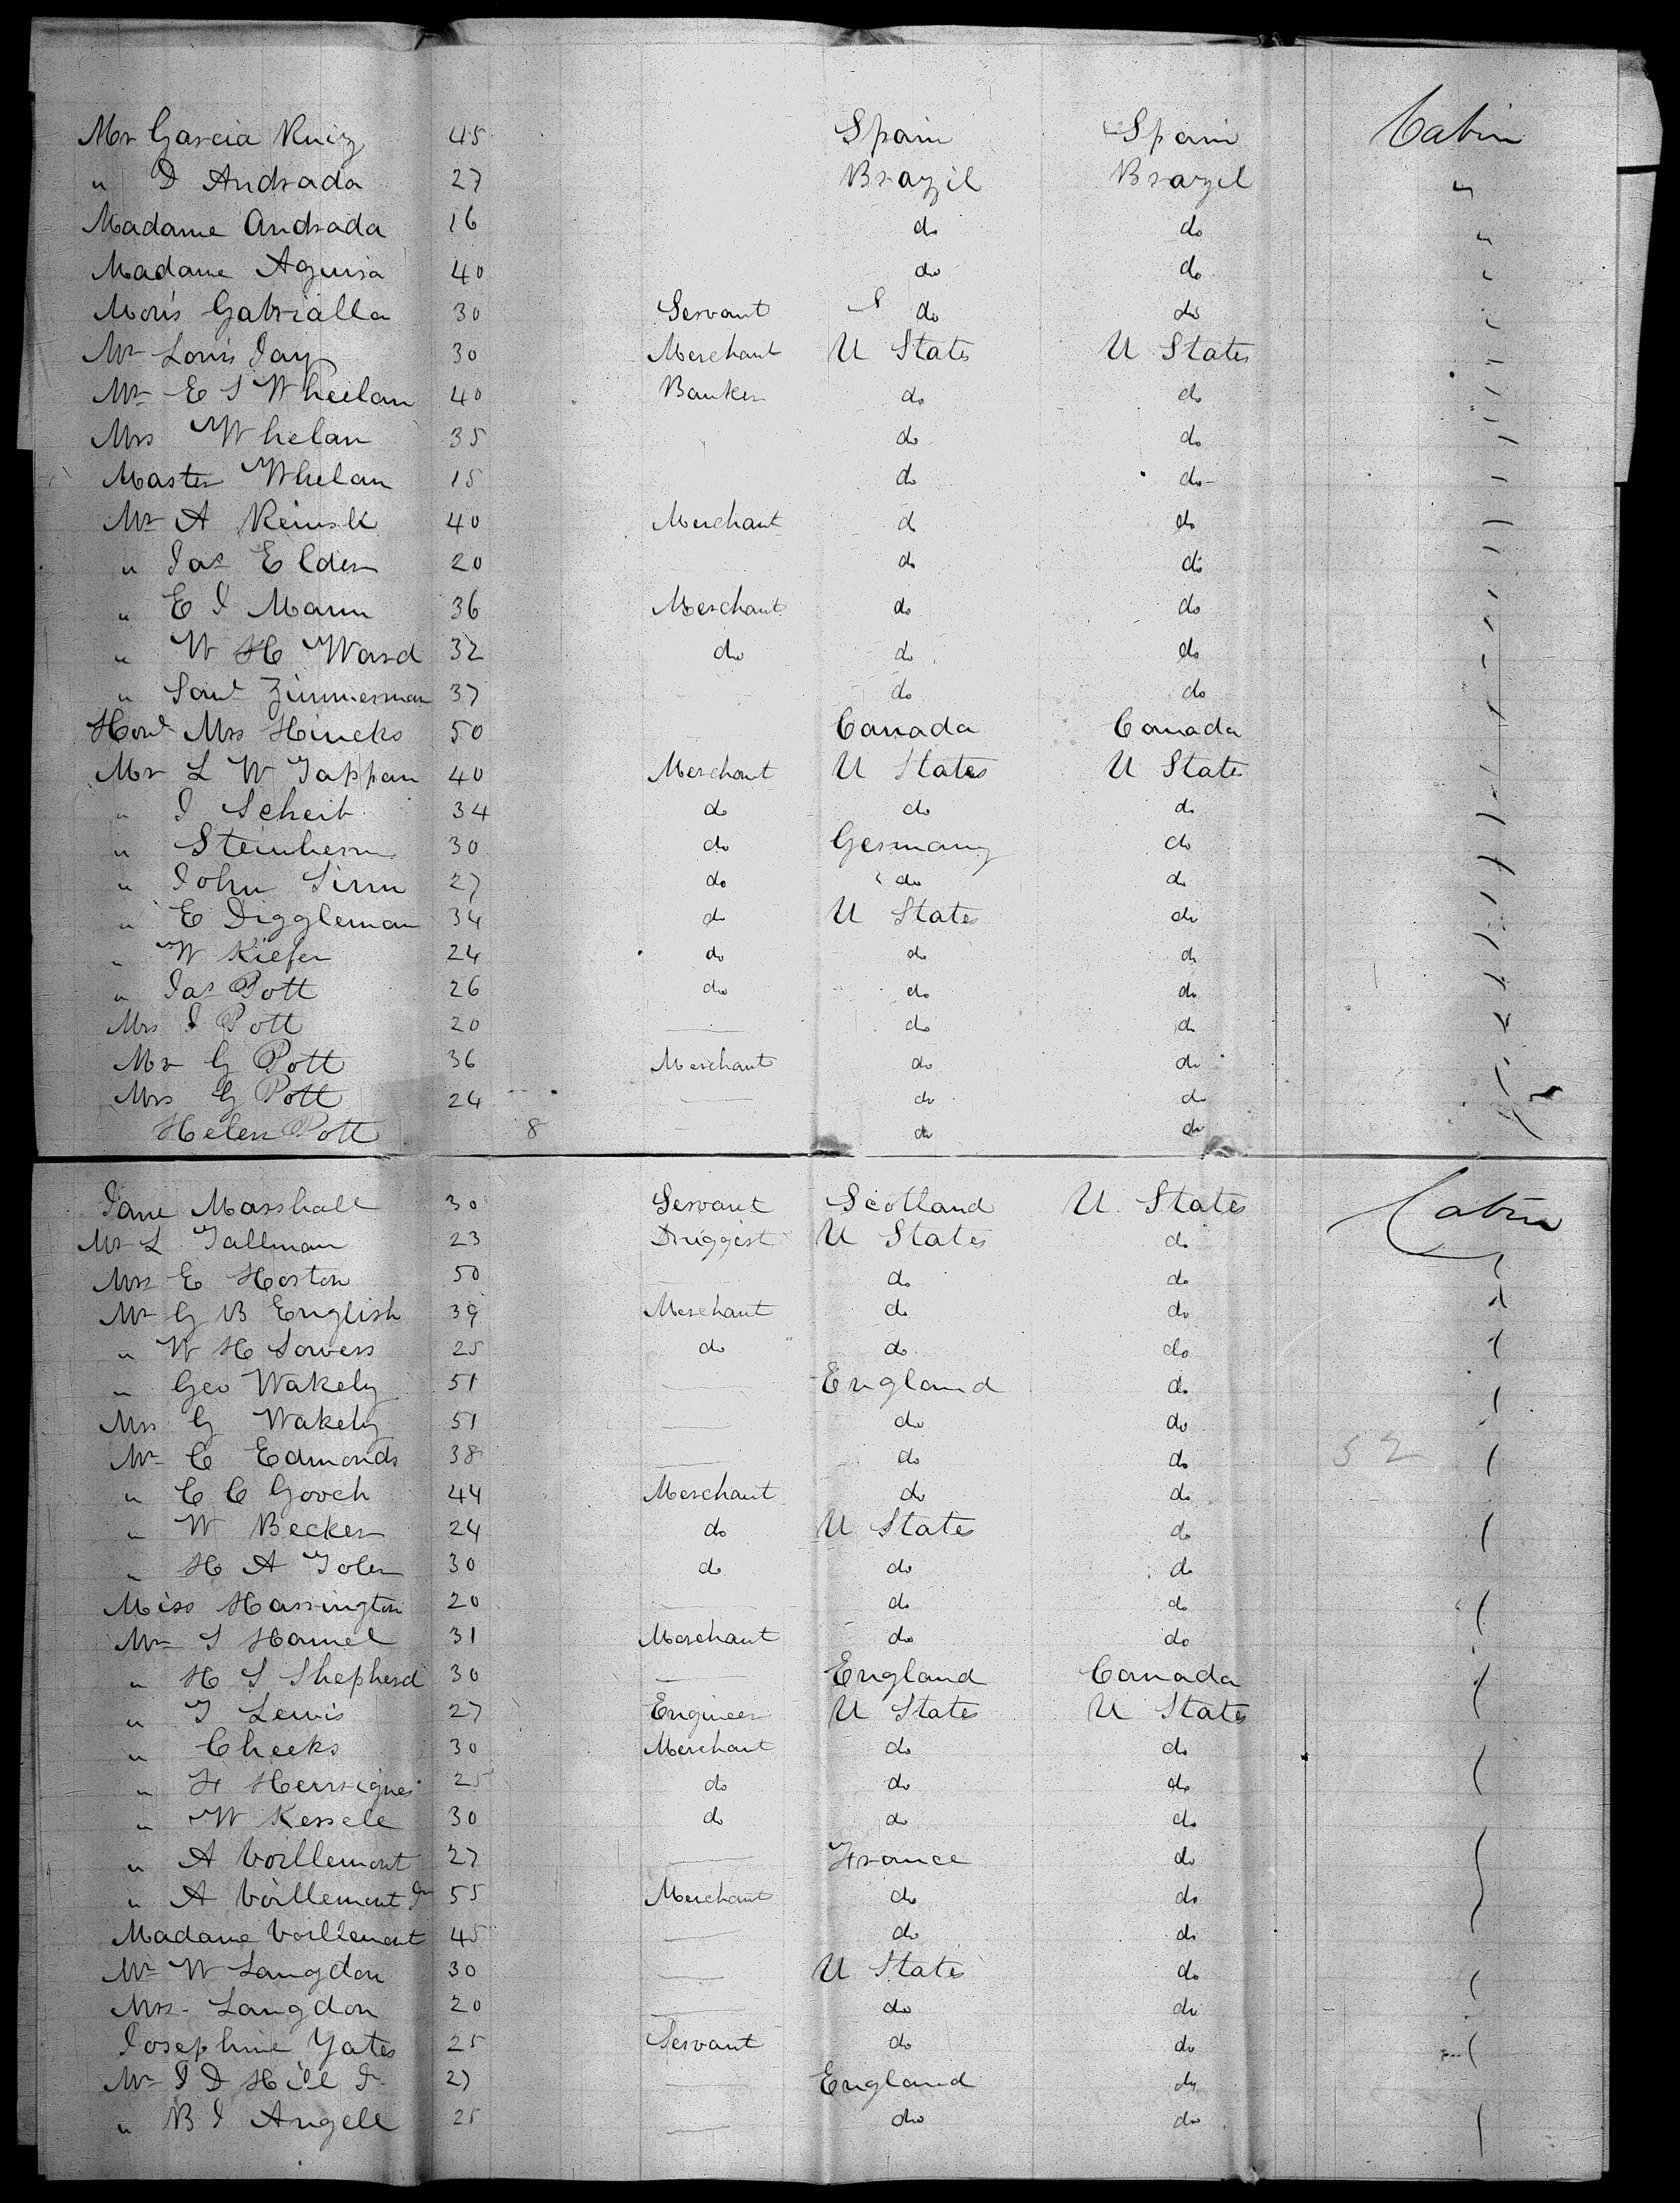 Mr Garcia Ruiz 45 Spain Spain Cabin
" D Andrada 27 Brazil Brazil "
Madame Andrada 16 do do "
Madame Aguira 40 do do "
Moris Gabrialla 30 Servant do do "
Mr Louis Jay 30 Merchant U States U States
Mr E S Wheelan 40 Banker do do
Mrs Whelan 35 do do
Master Whelan 15 do do
Mr A 40 Merchant do do
" Jas Elder 20 do do
" E J Mann 36 Merchant do do
" W H Ward 32 do do do
" Saml Zimmerman 37 do do
Honl Mrs Hincks 50 Canada Canada
Mr L W Tappan 40 Merchant U States U States
" J Scheib 34 do do do
" 30 do Germany do
" John Sinn 27 do do do
" E Diggleman 34 do U States do
" W Kiefer 24 do do do
" Jas Pott 26 do do do
Mrs J Pott 20 do do
Mr G Pott 36 Merchant do do
Mrs G Pott 24 do do
Helen Pott 8 do do
Jane Marshall 30 Servant Scotland U States Cabin
Mr L Tallman 23 Druggist U States do
Mrs E Horton 50 do do
Mr G B English 39 Merchant do do
" W H Sowers 25 do do do
" Geo Wakely 51 England do
Mrs G Wakely 51 do do
Mr C Edmonds 38 do do 52
" C C Gooch 44 Merchant do do
" W Becker 24 do U States do
" H A Toler 30 do do do
Miss Harrington 20 do do
Mr S Hamel 31 Merchant do do
" H S Shepherd 30 England Canada
" T Lewis 27 Engineer U States U States
" Cheeks 30 Merchant do do
" H 25 do do do
" W Kessele 30 do do do
" A Voillemont 27 France do
" A Voillemont Jr 55 Merchant do do
Madame Voillemont 45 do do
Mr W Langdon 30 U States do
Mrs Langdon 20 do do
Josephine Yates 25 Servant do do
Mr J D Hill Jr 27 England do
" B J Angell 25 do do